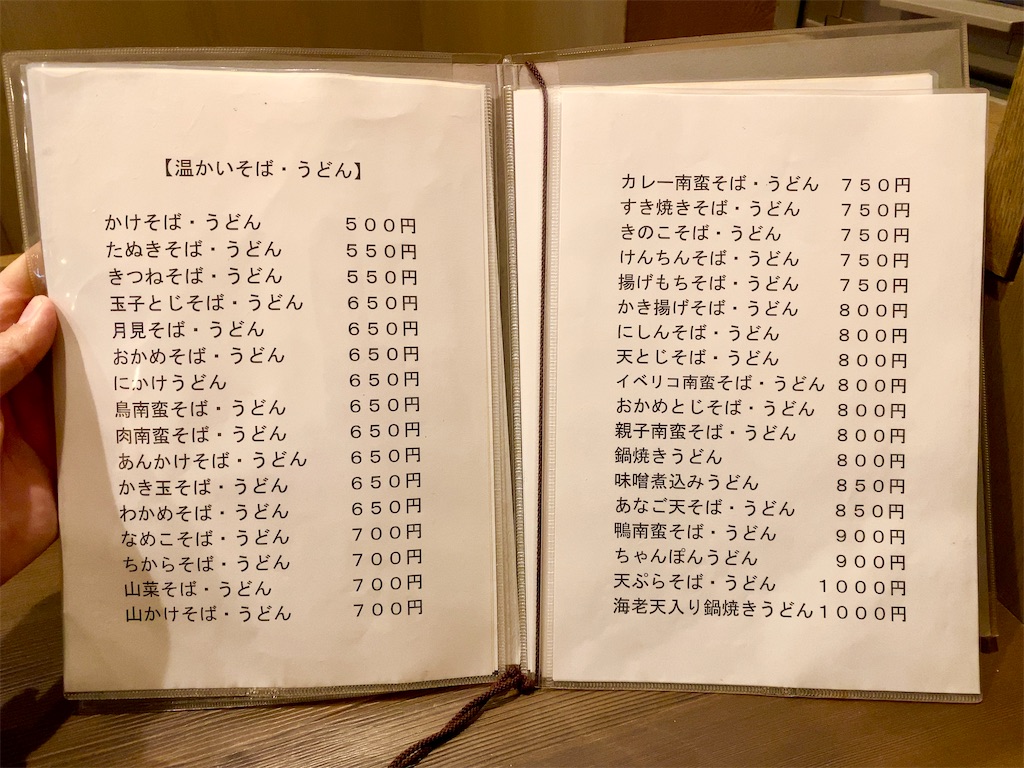 【温かいそば・うどん】
かけそば・うどん ５００円
たぬきそば・うどん ５５０円
きつねそば・うどん ５５０円
玉子とじそば・うどん ６５０円
月見そば・うどん ６５０円
おかめそば・うどん ６５０円
にかけうどん ６５０円
鳥南蛮そば・うどん ６５０円
肉南蛮そば・うどん ６５０円
あんかけそば・うどん ６５０円
かき玉そば・うどん ６５０円
わかめそば・うどん ６５０円
なめこそば・うどん ７００円
ちからそば・うどん ７００円
山菜そば・うどん ７００円
山かけそば・うどん ７００円
カレー南蛮そば・うどん ７５０円
すき焼きそば・うどん ７５０円
きのこそば・うどん ７５０円
けんちんそば・うどん ７５０円
揚げもちそば・うどん ７５０円
かき揚げそば・うどん ８００円
にしんそば・うどん ８００円
天とじそば・うどん ８００円
イベリコ南蛮そば・うどん ８００円
おかめとじそば・うどん ８００円
親子南蛮そば・うどん ８００円
鍋焼きうどん ８００円
味噌煮込みうどん ８５０円
あなご天そば・うどん ８５０円
鴨南蛮そば・うどん ９００円
ちゃんぽんうどん ９００円
天ぷらそば・うどん １０００円
海老天入り鍋焼きうどん１０００円